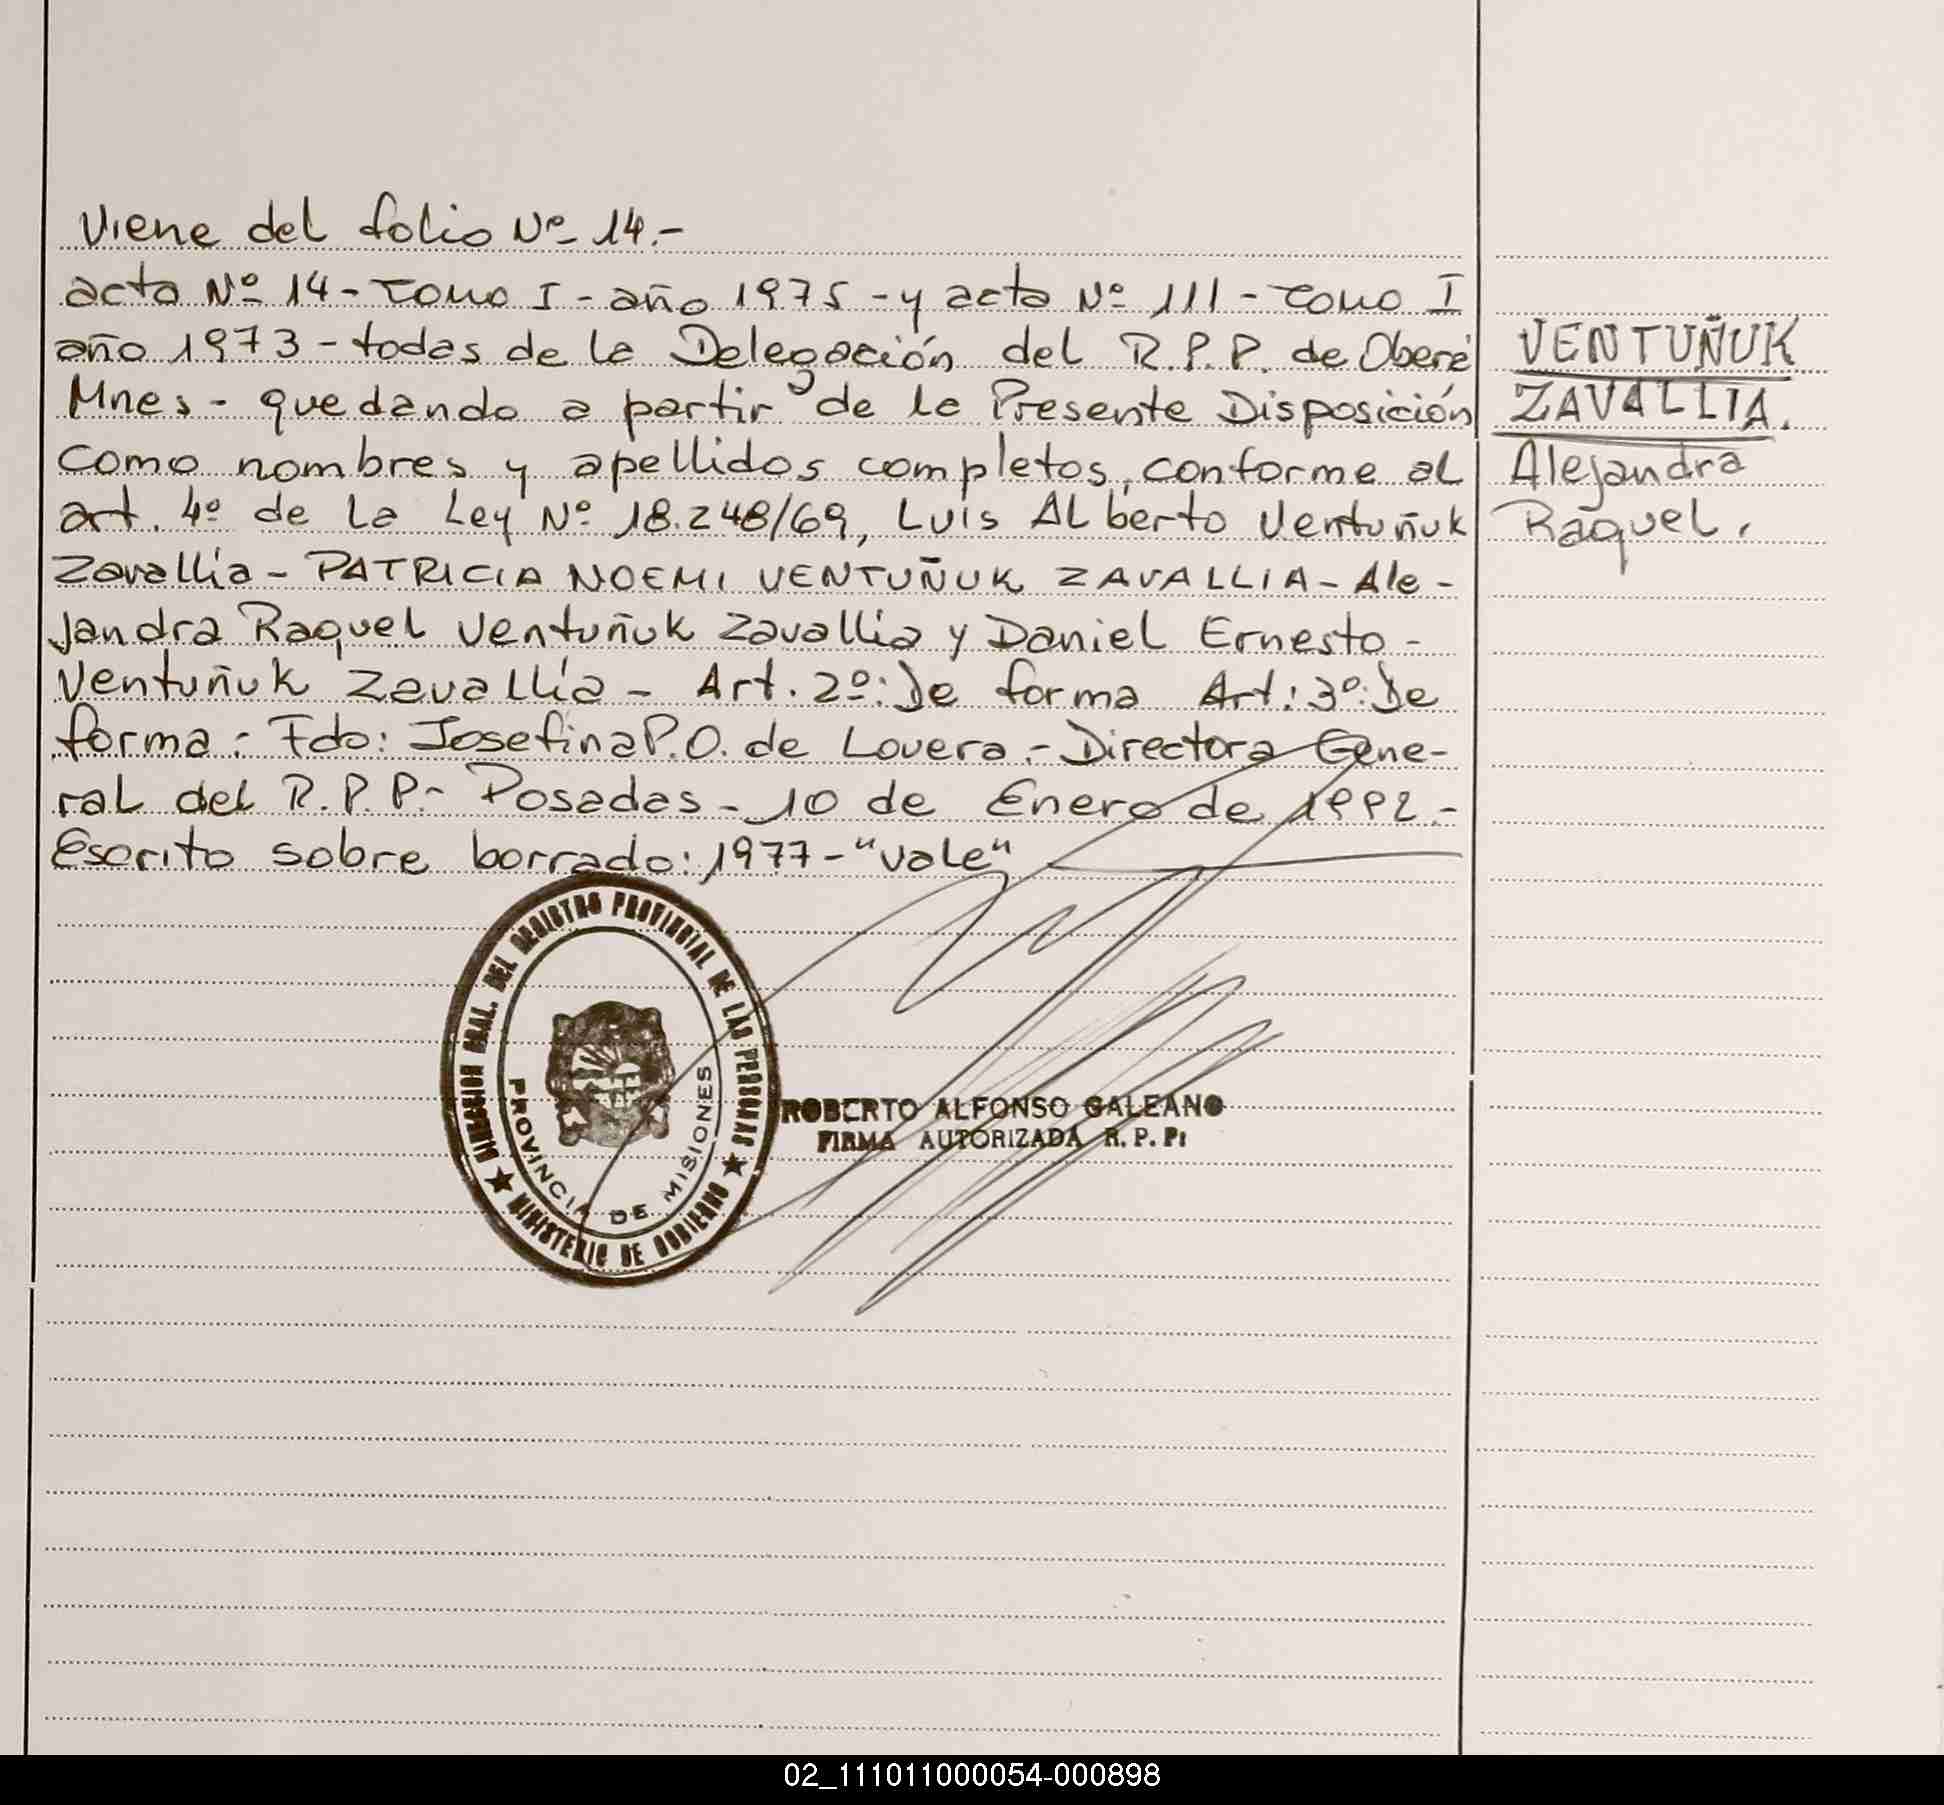 Viene del folio Nº 14.-
acta Nº 14 - Tomo I - año 1975 - y acta Nº 111 - Tomo I
año 1973 - todas de la Delegación del R.P.P. de Oberá
Mnes - quedando a partir de la Presente Disposición
como nombres y apellidos completos, conforme al
art. 4º de la Ley Nº 18.248/69, Luis Alberto Ventuñuk
Zavallía - PATRICIA NOEMI VENTUÑUK ZAVALLIA - Ale-
jandra Raquel Ventuñuk Zavallía y Daniel Ernesto -
Ventuñuk Zavallía - Art. 2º: De forma Art: 3º: De
forma: Fdo: Josefina P.O. de Lovera.- Directora Gene-
ral del R.P.P.- Posadas - 10 de Enero de 1992.-
Escrito sobre borrado: 1977 - "vale"
VENTUÑUK
ZAVALLIA.
Alejandra
Raquel.
DIRECCION GRAL. DEL REGISTRO PROVINCIAL DE LAS PERSONAS
★ MINISTERIO DE GOBIERNO ★
PROVINCIA DE MISIONES
ROBERTO ALFONSO GALEANO
FIRMA AUTORIZADA R. P. P.
02_111011000054-000898